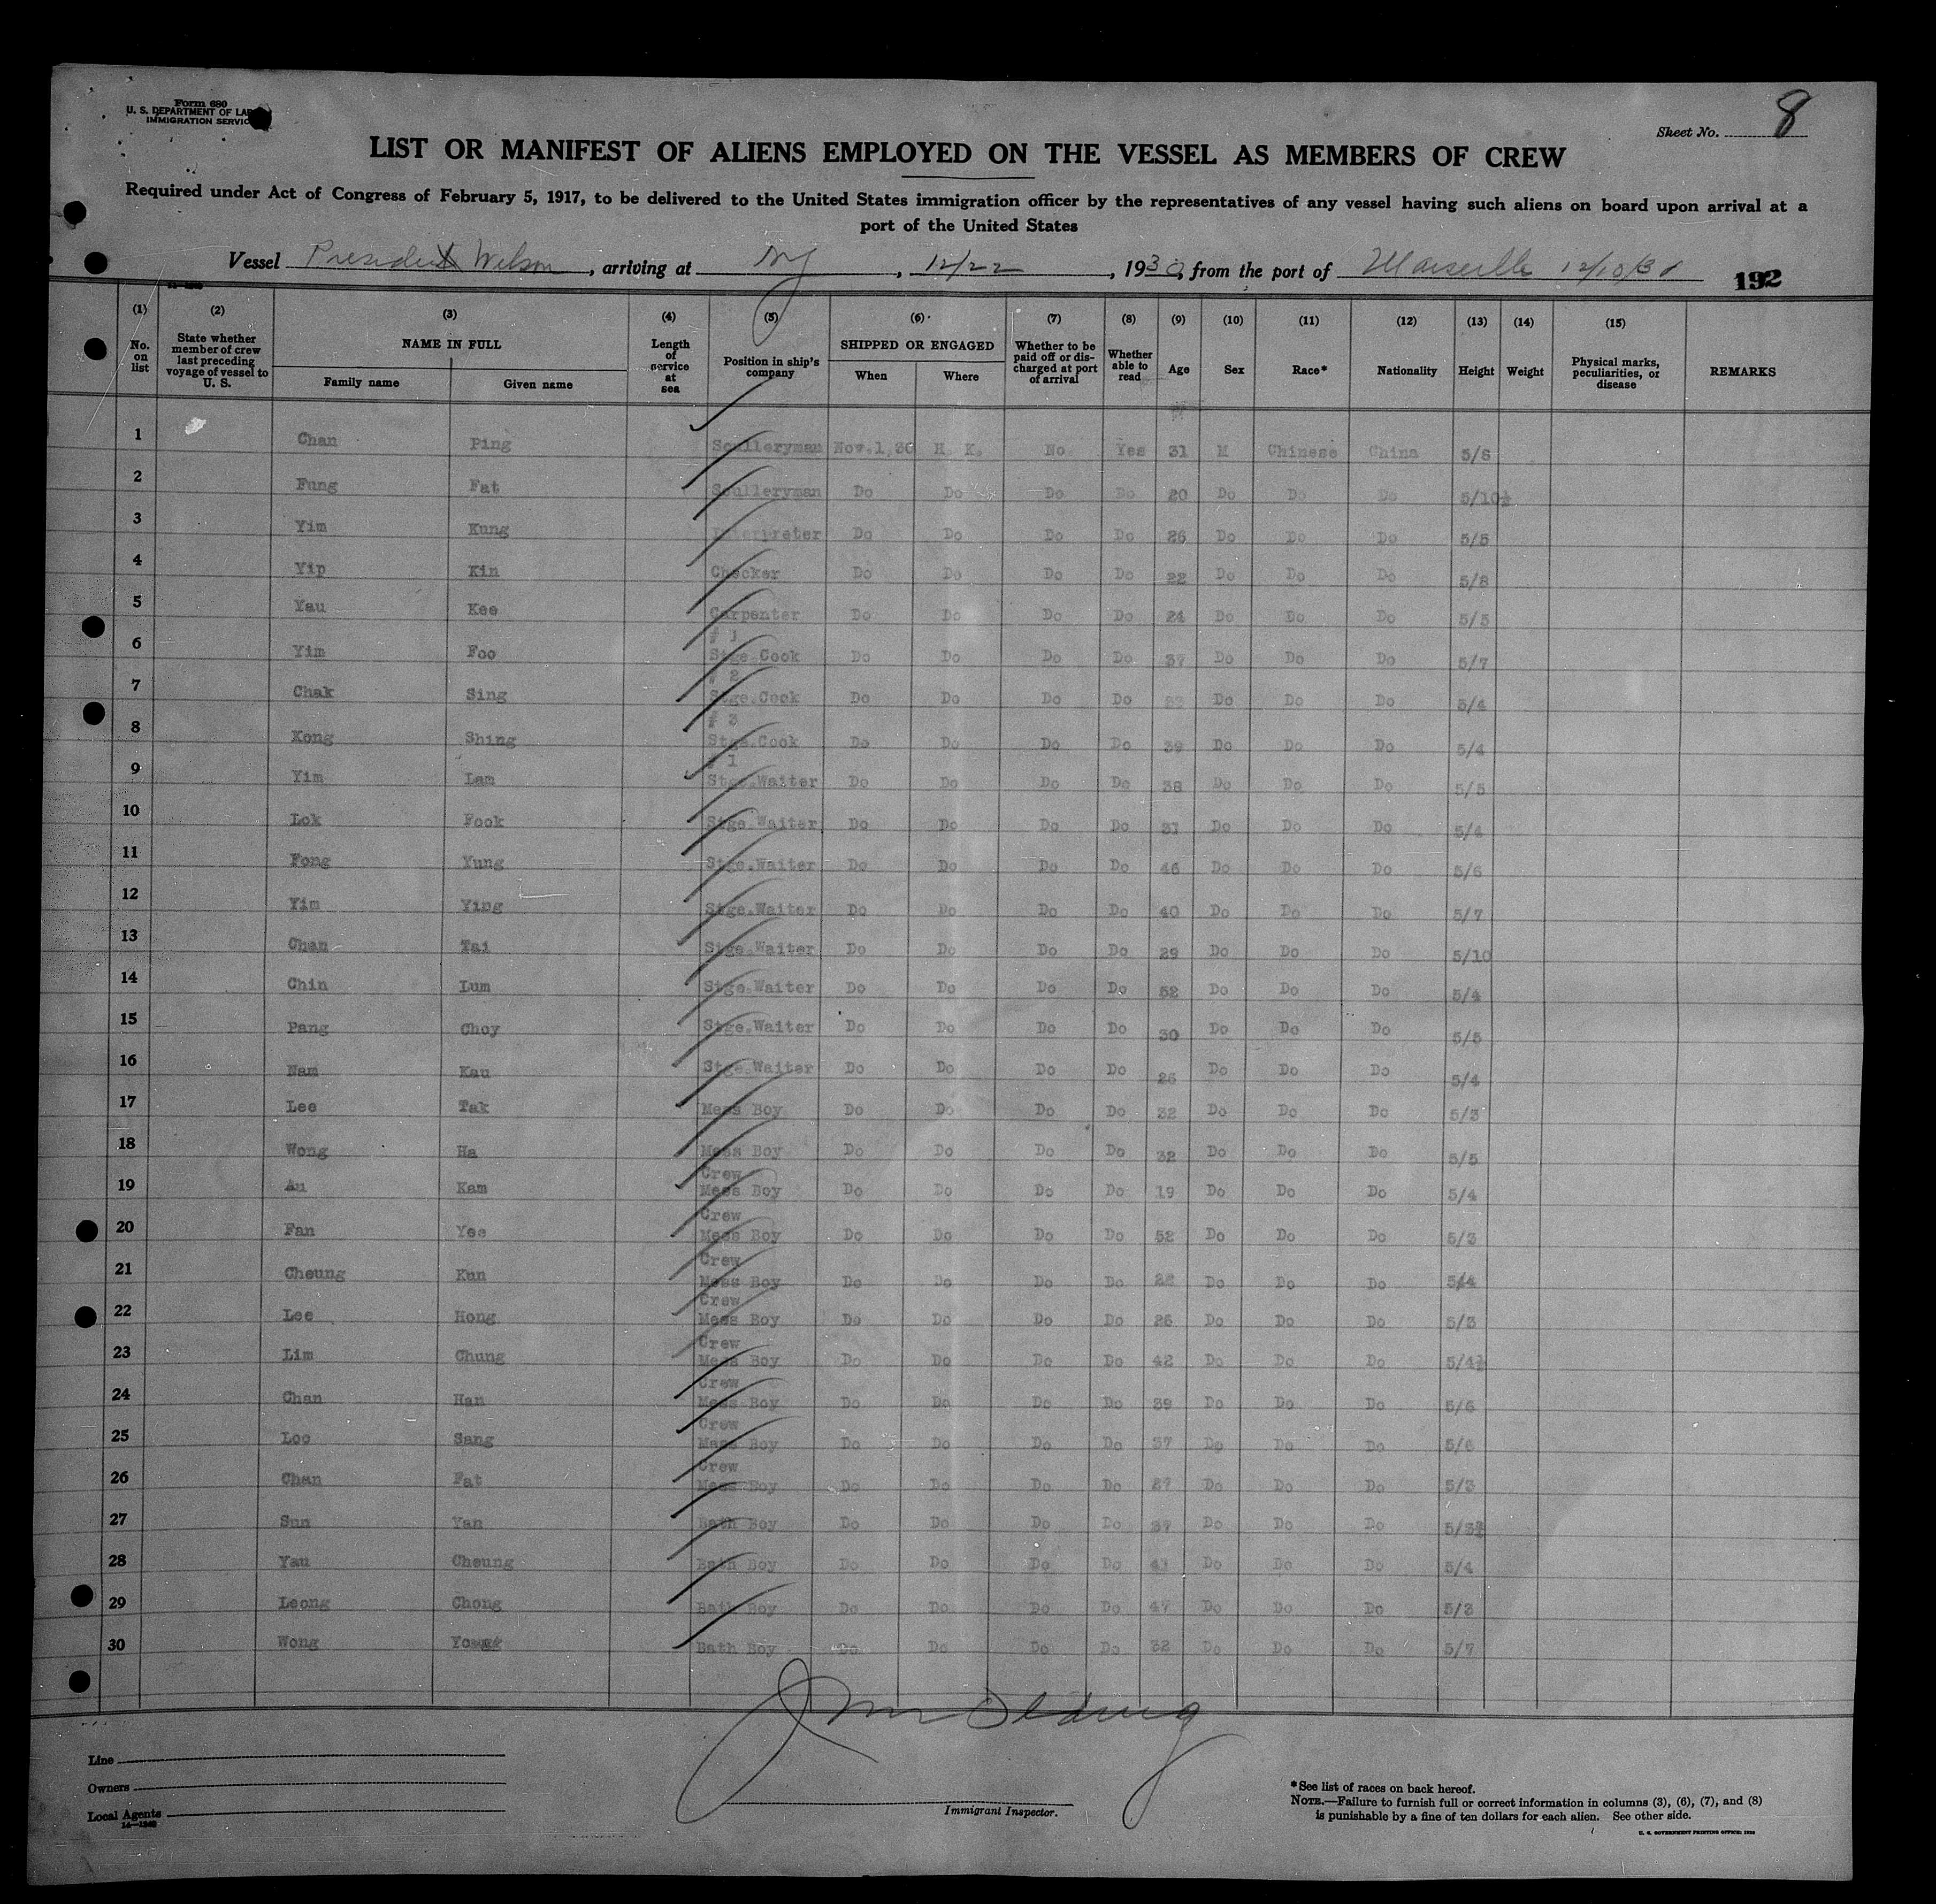 Form 680
U. S. DEPARTMENT OF LAB
IMMIGRATION SERVIC
Sheet No. 8
LIST OR MANIFEST OF ALIENS EMPLOYED ON THE VESSEL AS MEMBERS OF CREW
Required under Act of Congress of February 5, 1917, to be delivered to the United States immigration officer by the representatives of any vessel having such aliens on board upon arrival at a
port of the United States
Vessel President Wilson, arriving at NY, 12/22, 1930, from the port of Marseille 12/10/30 192
(1) No. on list (2) State whether member of crew last preceding voyage of vessel to U. S. (3) NAME IN FULL Family name Given name (4) Length of service at sea (5) Position in ship's company (6) SHIPPED OR ENGAGED When Where (7) Whether to be paid off or discharged at port of arrival (8) Whether able to read (9) Age (10) Sex (11) Race* (12) Nationality (13) Height (14) Weight (15) Physical marks, peculiarities, or disease REMARKS
1 Chan Ping Sculleryman Nov.1,30 H. K. No Yes 31 M Chinese China 5/8
2 Fung Fat Sculleryman Do Do Do Do 20 Do Do Do 5/10½
3 Yim Kung Interpreter Do Do Do Do 26 Do Do Do 5/5
4 Yip Kin Checker Do Do Do Do 22 Do Do Do 5/8
5 Yau Kee Carpenter Do Do Do Do 24 Do Do Do 5/5
6 Yim Foo # 1 Stge.Cook Do Do Do Do 37 Do Do Do 5/7
7 Chak Sing # 2 Stge.Cook Do Do Do Do Do Do Do 5/4
8 Kong Shing # 3 Stge.Cook Do Do Do Do 39 Do Do Do 5/4
9 Yim Lam # 1 Stge.Waiter Do Do Do Do 38 Do Do Do 5/5
10 Lok Fook Stge.Waiter Do Do Do Do 37 Do Do Do 5/4
11 Fong Yung Stge.Waiter Do Do Do Do 46 Do Do Do 5/6
12 Yim Ying Stge.Waiter Do Do Do Do 40 Do Do Do 5/7
13 Chan Tai Stge.Waiter Do Do Do Do 29 Do Do Do 5/10
14 Chin Lum Stge.Waiter Do Do Do Do 52 Do Do Do 5/4
15 Pang Choy Stge.Waiter Do Do Do Do 30 Do Do Do 5/5
16 Nam Kau Stge.Waiter Do Do Do Do 26 Do Do Do 5/4
17 Lee Tak Mess Boy Do Do Do Do 32 Do Do Do 5/3
18 Wong Ha Mess Boy Do Do Do Do 32 Do Do Do 5/5
19 Au Kam Crew Mess Boy Do Do Do Do 19 Do Do Do 5/4
20 Fan Yee Crew Mess Boy Do Do Do Do 52 Do Do Do 5/3
21 Cheung Kun Crew Mess Boy Do Do Do Do Do Do Do 5/4
22 Lee Hong Crew Mess Boy Do Do Do Do 26 Do Do Do 5/3
23 Lim Chung Crew Mess Boy Do Do Do Do 42 Do Do Do 5/4½
24 Chan Han Crew Mess Boy Do Do Do Do 39 Do Do Do 5/6
25 Loo Sang Crew Mess Boy Do Do Do Do 37 Do Do Do 5/6
26 Chan Fat Crew Mess Boy Do Do Do Do 27 Do Do Do 5/3
27 Sun Yan Bath Boy Do Do Do Do 37 Do Do Do
28 Yau Cheung Bath Boy Do Do Do Do 41 Do Do Do 5/4
29 Leong Chong Bath Boy Do Do Do Do 47 Do Do Do 5/3
30 Wong Bath Boy Do Do Do Do 32 Do Do Do 5/7
Line
Owners
Local Agents
14—1240
Immigrant Inspector.
*See list of races on back hereof.
NOTE.—Failure to furnish full or correct information in columns (3), (6), (7), and (8)
is punishable by a fine of ten dollars for each alien. See other side.
U. S. GOVERNMENT PRINTING OFFICE: